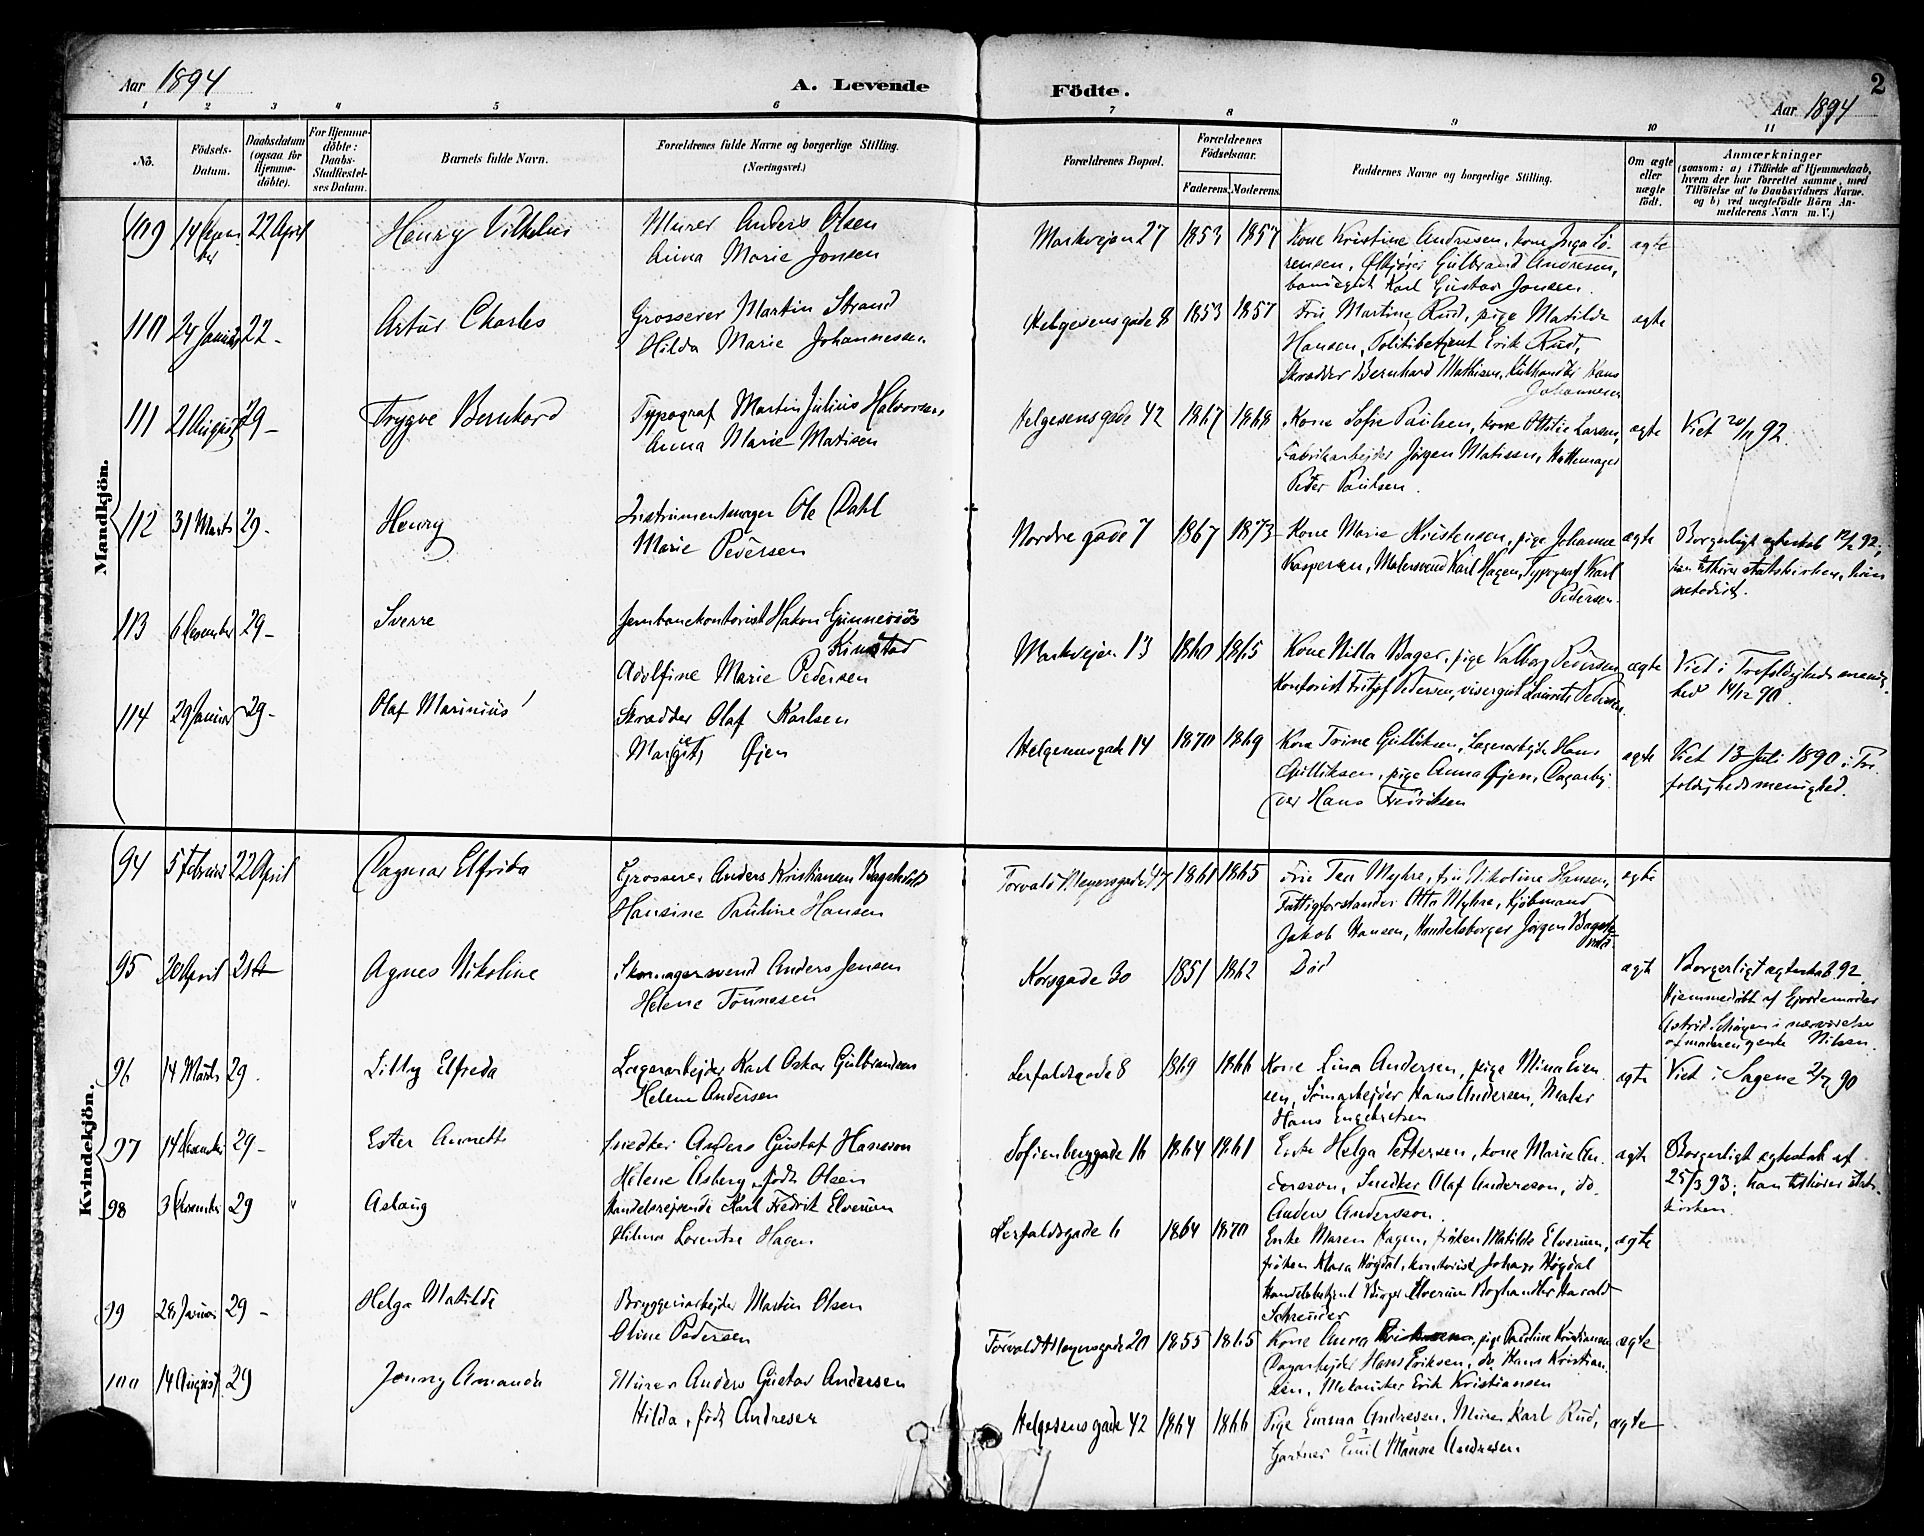 Aar 1894
A. Levende Födte.
Aar 1894
2
1 2 3 4 5 6 7 8 9 10 11
No.
Födsels-Datum.
Daabsdatum (ogsaa for Hjemme-döbte).
For Hjemme-döbte: Daabs-Stadfæstel-ses Datum.
Barnets fulde Navn.
Forældrenes fulde Navne og borgerlige Stilling. (Næringsvei.)
Forældrenes Bopæl.
Forældrenes Födselsaar.
Faderens. Moderens.
Faddernes Navne og borgerlige Stilling.
Om ægte eller uægte födt.
Anmærkninger (saasom: a) i Tilfælde af Hjemmedaab, hvem der har forrettet samme, med Tilföielse af to Daabsvidners Navne. og b) ved uægtefödte Börn An-melderens Navn m. V.)
Mandkjön.
109 22 April Henry Vilhelm
Murer Anders Olsen
Anna Marie Jonsen
Markvejen 27 1853 1857
Kone Kristine Andresen, kone Inga Sö-
rensen, Ölkjörer Gulbrand Andresen,
Karl Gustav Jonsen.
ægte
110 24 Januar 22 - Artur Charles
Grosserer Martin Strand
Hilda Marie Johannessen
Helgesens gade 8 1853 1857
Fru Martine Rud, pige Matilde
Hansen, Politibetjent Erik Rud,
Skrædder Bernhard Mathisen, Kulhandler Hans
Johannesen
ægte
111 21 August 29 - Trygve Bernhard
Typograf Martin Julius Halvorsen
Anna Marie Matisen
Helgesens gade 42 1867 1868
Kone Sofie Paulsen, kone Ottilie Larsen,
Fabrikarbejder Jörgen Matisen, Hattemager
Peder Paulsen.
ægte
Viet 20/11 92
112 31 Marts 29 - Henry
Instrumentmager Ole Dahl
Marie Pedersen
Nordre gade 7 1867 1873
Kone Marie Kristensen, pige Johanne
Kaspersen, Malersvend Karl Hagen, Typograf Karl
Pedersen.
ægte
Borgerligt ægteskab 12/2 92;
han tilhörer statskirken, hun
metodist.
113 6 Desember 29 - Sverre
Jernbanekontorist Hakon Gunnerius
Kimstad
Adolfine Marie Pedersen
Markvejen 13 1860 1865
Kone Milla Bager, pige Valborg Pedersen
Kontorist Fritjof Pedersen, visergut Laurits Pedersen.
ægte
Viet i Trefoldigheds menig-
hed 14/12 90.
114 29 Januar 29 - Olaf Marinius
Skrædder Olaf Karlsen
Margit Öjen
Helgesensgade 14 1870 1869
Kone Trine Gulliksen, Lagerarbejder Hans
Gulliksen, pige Anna Öjen, Dagarbej-
der Hans Fredriksen
ægte
Viet 13 Juli 1890 i Tre-
foldighedsmenighed.
Kvindekjön.
94 5 Februar 22 April Dagmar Elfrida
Grosserer Anders Kristiansen
Hansine Pauline Hansen
Torvald Meyersgade 47 1861 1865
Fru Tea Myhre, fru Nikoline Hansen,
Fattigforstander Otto Myhre, Kjöbmand
Jakob Hansen, Handelsborger Jörgen
ægte
95 20 April 21 Agnes Nikoline
Skomagersvend Anders Jensen
Helene Tönnesen
Korsgade 30 1851 1862
Död
ægte
Borgerligt ægteskab 92.
Hjemmedöbt af Gjordemoder
Astrid i nærværelse
af Nilsen
96 14 Marts 29. Lilly Elfreda
Lagerarbejder Karl Oskar Gulbrandsen
Helene Andersen
Lerfaldsgade 8 1869 1866
Kone Lina Andersen, pige Mina Lien-
sen, Sömarbejder Hans Andersen, Maler
Hans Engebretsen
ægte
Viet i Sagene 2/7 90
97 14 Desember 29 - Ester Annette
Snedker Anders Gustaf Hansson
Helene Asberg, födt Olsen
Sofienberggade 16 1864 1861
Enke Helga Pettersen, kone Marie An-
dersson, Snedker Olaf Andersson, do.
Anders Andersson.
ægte
Borgerligt ægteskab af
25/3 93; han tilhörer stats-
kirken.
98 3 Desember 29 " Aslaug
Handelsrejsende Karl Fredrik Elverum
Hilma Lorentse Hagen
Lerfaldsgade 6 1864 1870
Enke Maren Hagen, fröken Matilde Elverum,
fröken Klara Högdal, kontorist Johan Högdal
Handelsbetjent Birger Elverum Boghandler Harald
Schreuder
ægte
99 28 Januar 29 - Helga Matilde
Bryggeriarbejder Martin Olsen
Oline Pedersen
Torvald Meyersgade 20 1855 1865
Kone Anna Eriksen, pige Pauline Kristiansen
Dagarbejder Hans Eriksen, do. Hans Kristian-
sen, Mekaniker Erik Kristiansen
ægte
100 14 August 29 Jenny Amanda
Murer Anders Gustav Andersen
Hilda, födt Andresen
Helgesens gade 42 1864 1866
Pige Emma Andresen, Murer Karl Rud,
Gartner Emil Andresen
ægte